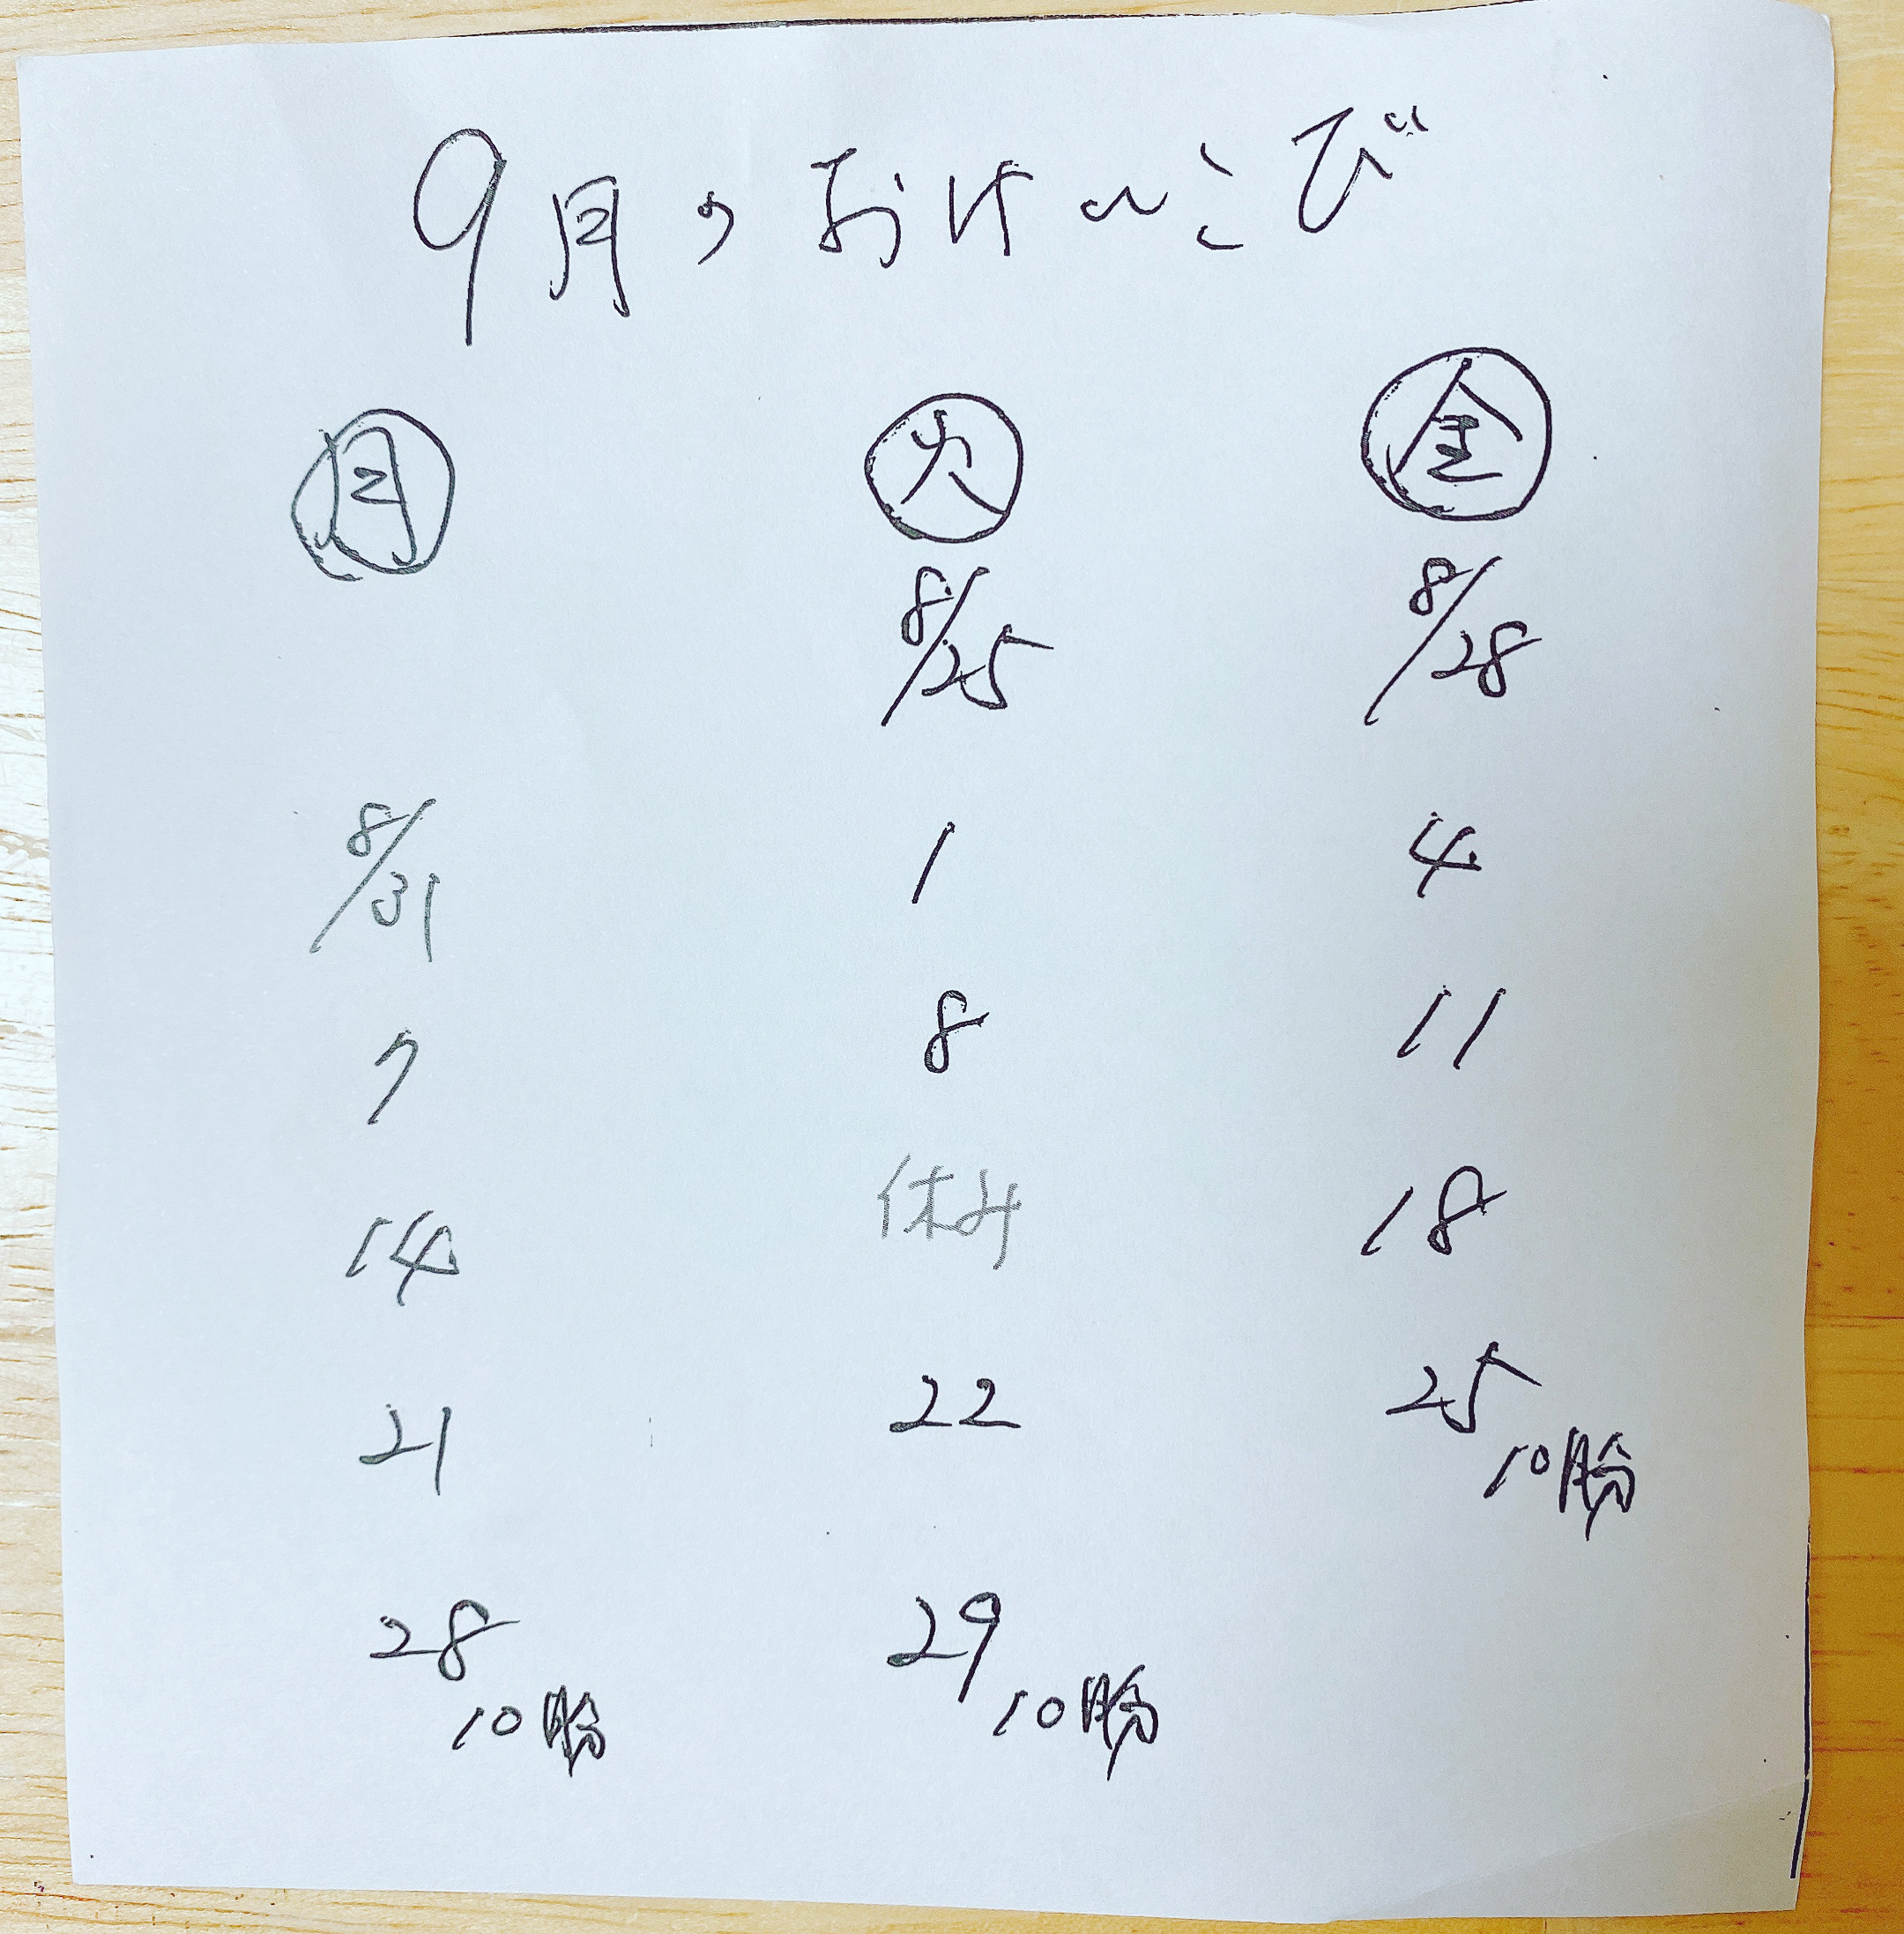 9月のおけいこび
月 火 金
8/25 8/28
8/31 1 4
7 8 11
14 休み 18
21 22 25
10月分
28 29
10月分 10月分